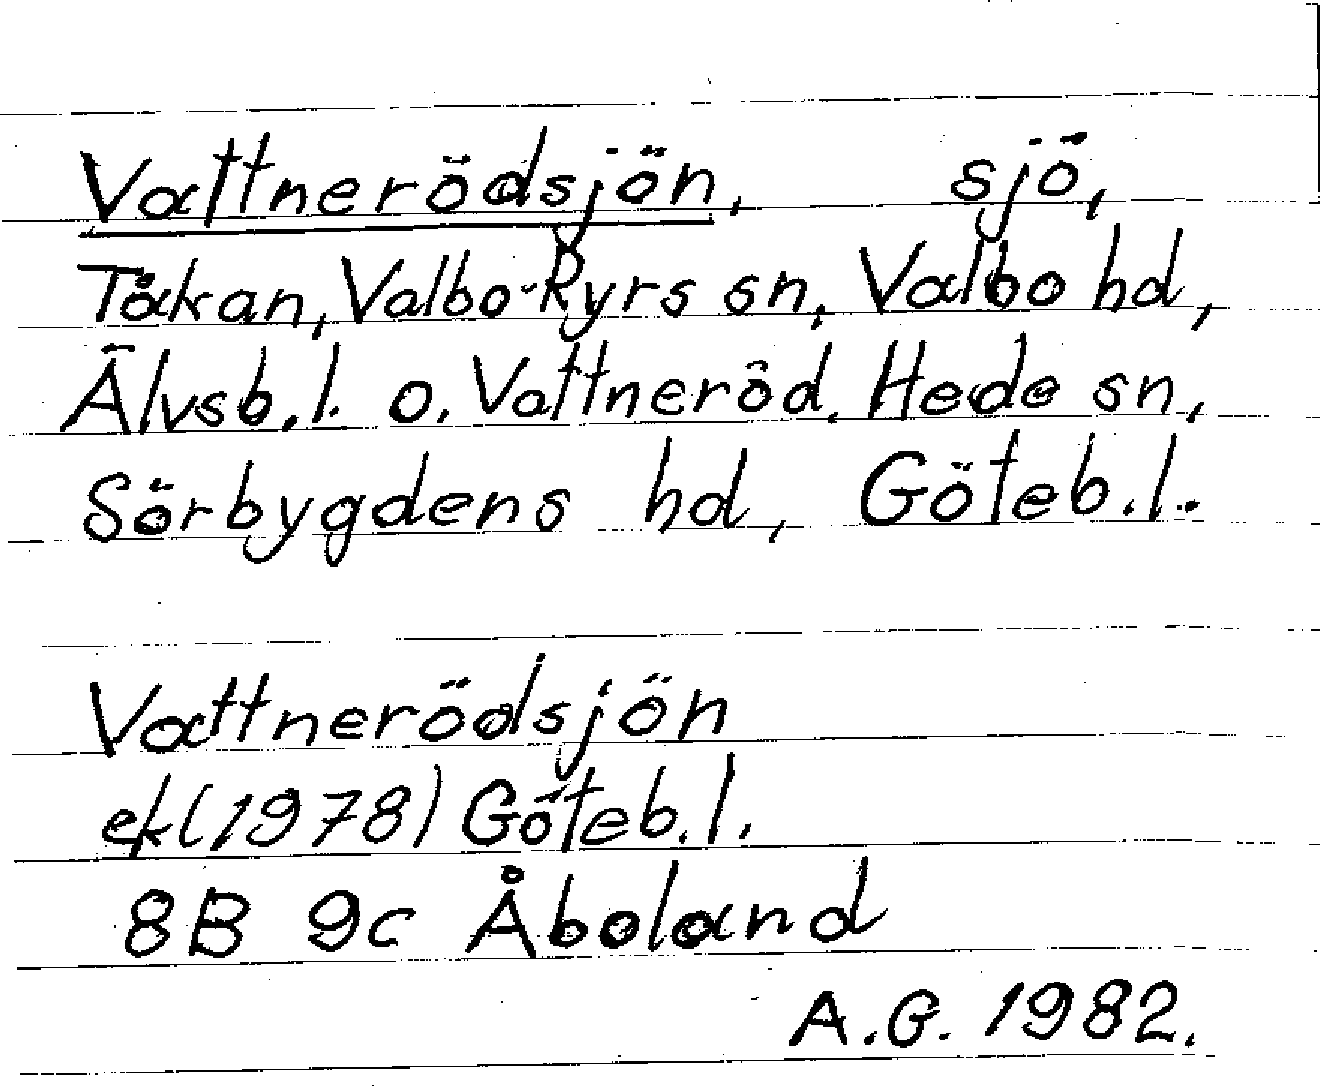 Vattnerödsjön, sjö,
Tåkan, Valbo-Ryrs sn, Valbo hd,
Älvsb.l. o. Vattneröd, Hede sn,
Sörbygdens hd, Göteb.l.
Vattnerödsjön
ek (1978) Göteb.l.
8B 9c Åboland
A.G. 1982.